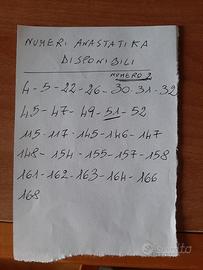 NUMERI ANASTATIKA
DISPONIBILI
NUMERO 2
4-5-22-26-30-31-32
45-47-49-51-52
115-117-145-146-147
148-154-155-157-158
161-162-163-164-166
168
subito